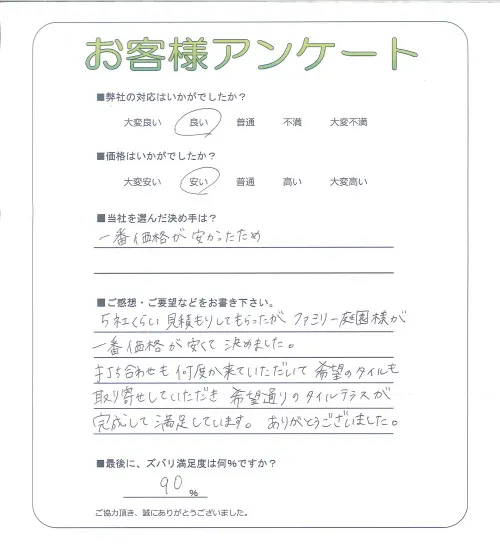 お客様アンケート
■弊社の対応はいかがでしたか？
大変良い 良い 普通 不満 大変不満
■価格はいかがでしたか？
大変安い 安い 普通 高い 大変高い
■当社を選んだ決め手は？
一番価格が安かったため
■ご感想・ご要望などをお書き下さい。
5社くらい見積もりしてもらったがファミリー庭園様が
一番価格が安くて決めました。
打ち合わせも何度か来ていただいて希望のタイルも
取り寄せしていただき希望通りのタイルテラスが
完成して満足しています。ありがとうございました。
■最後に、ズバリ満足度は何%ですか？
90%
ご協力頂き、誠にありがとうございました。